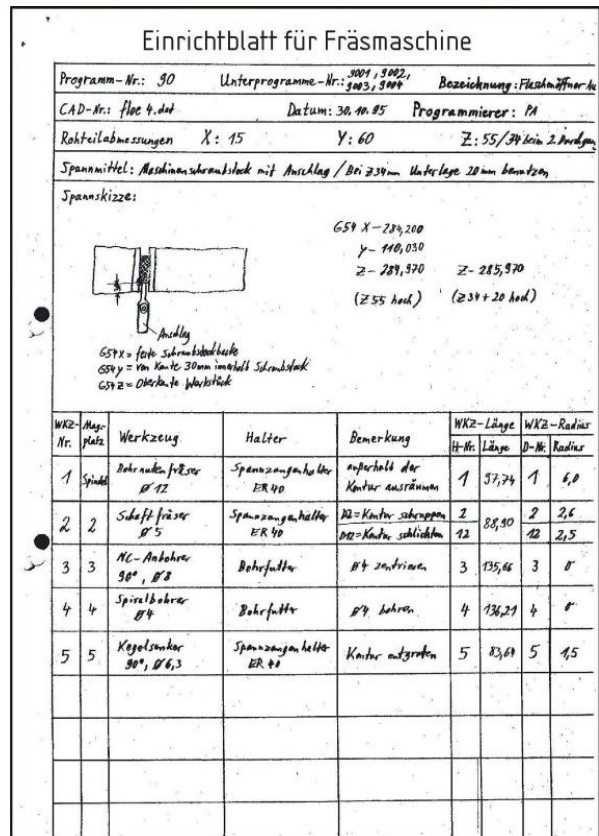 Einrichtblatt für Fräsmaschine
Programm-Nr.: 90 Unterprogramme-Nr.: 9001, 9002, 9003, 9004 Bezeichnung: Flaschenöffner
CAD-Nr.: floe 4.dat Datum: 30.10.95 Programmierer: PA
Rohteilabmessungen X: 15 Y: 60 Z: 55/34 beim 2. Durchgang
Spannmittel: Maschinenschraubstock mit Anschlag / Bei Z34mm Unterlage 20 mm benutzen
Spannskizze:
G54 X-284,200
Y-110,030
Z-289,970 Z-285,970
(Z55 hoch) (Z34+20 hoch)
Anschlag
G54X = feste Schraubstockbacke
G54Y = von Kante 30mm innerhalb Schraubstock
G54Z = Oberkante Werkstück
WKZ-Nr. Mag.-platz Werkzeug Halter Bemerkung WKZ-Länge WKZ-Radius
H-Nr. Länge D-Nr. Radius
1 Spindel Bohrnutenfräser Ø 12 Spannzangenhalter ER 40 außerhalb der Kontur ausräumen 1 97,74 1 6,0
2 2 Schaftfräser Ø 5 Spannzangenhalter ER 40 D2=Kontur schruppen 2 88,90 2 2,6
D12=Kontur schlichten 12 12 2,5
3 3 NC-Anbohrer 90°, Ø 8 Bohrfutter Ø4 zentrieren 3 135,66 3 0
4 4 Spiralbohrer Ø4 Bohrfutter Ø4 bohren 4 136,21 4 0
5 5 Kegelsenker 90°, Ø6,3 Spannzangenhalter ER 40 Kontur entgraten 5 83,69 5 1,5